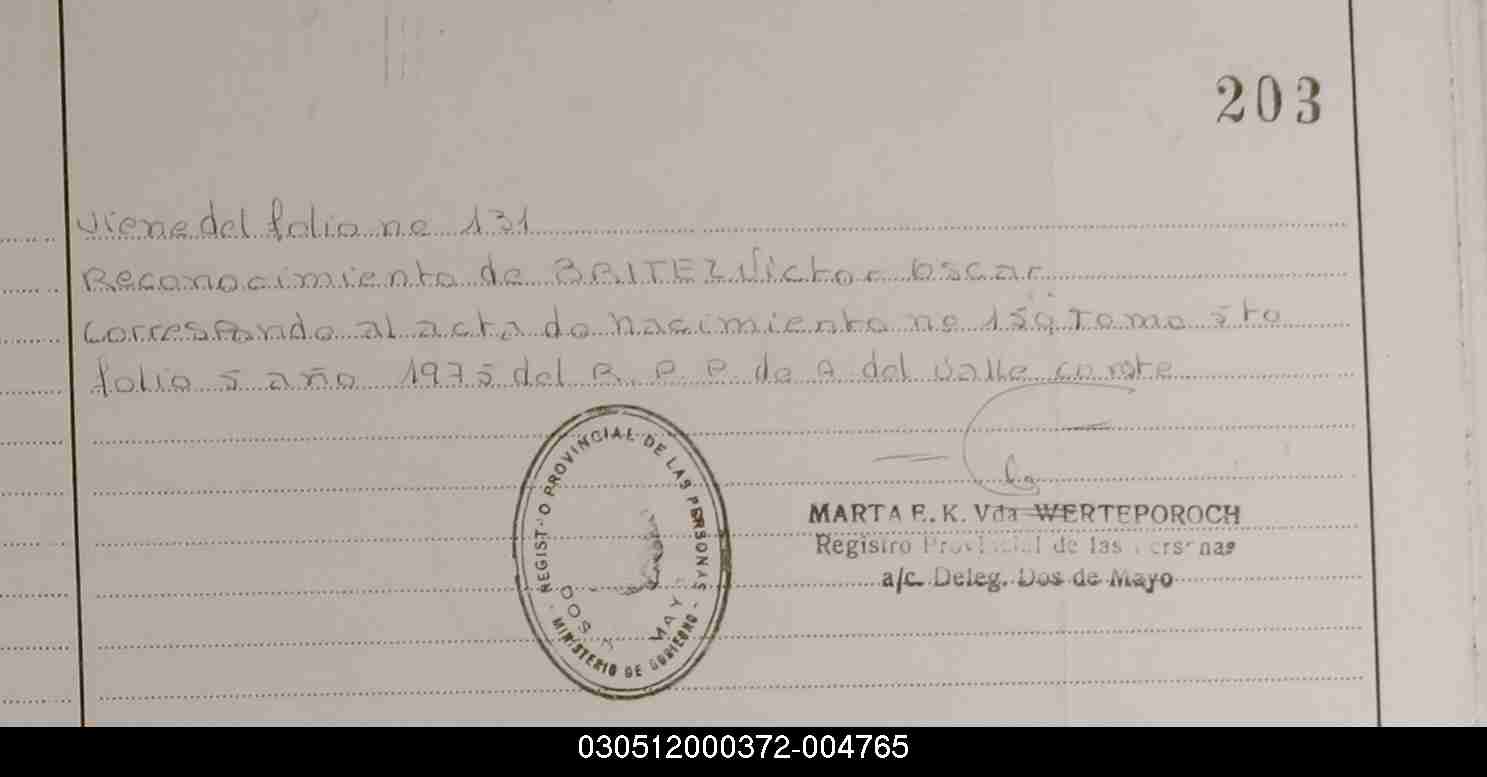 203
viene del folio no 131
Reconocimiento de BRITEZ Victor Oscar
Corresponde al acta de nacimiento no 159 Tomo 5to
folio 5 año 1975 del R. P. P de A del Valle conste
REGISTRO PROVINCIAL DE LAS PERSONAS
DOS MAY
- MINISTERIO DE GOBIERNO -
MARTA E. K. Vda WERTEPOROCH
Registro Provincial de las Personas
a/c. Deleg. Dos de Mayo
030512000372-004765